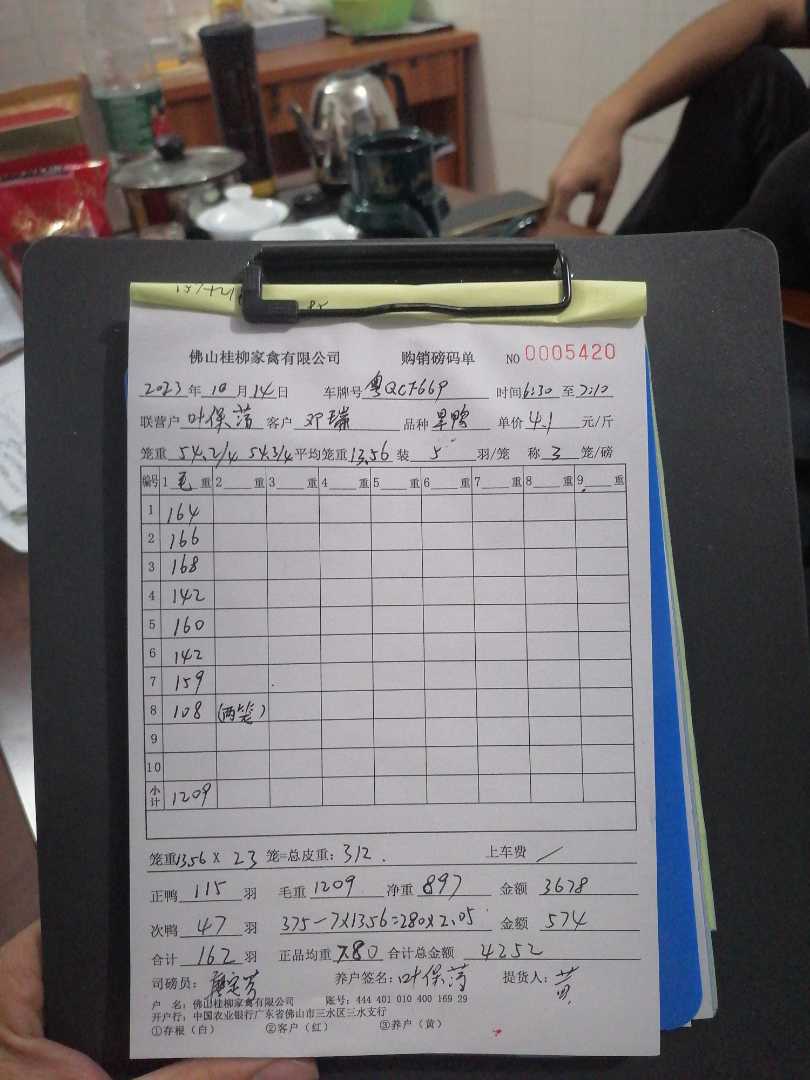 佛山桂柳家禽有限公司 购销磅码单 NO 0005420
2023年10月14日 车牌号 粤QCF669 时间6:30至7:10
联营户 叶保荡 客户 邓瑞 品种 旱鸭 单价 4.1 元/斤
笼重 54.2/4 54.3/4 平均笼重13.56 装 5 羽/笼 称 3 笼/磅
编号 1 毛 重 2 重 3 重 4 重 5 重 6 重 7 重 8 重 9 重
1 164
2 166
3 168
4 142
5 160
6 142
7 159
8 108 (两笼)
9
10
小计 1209
笼重13.56 X 23 笼=总皮重: 312. 上车费 /
正鸭 115 羽 毛重 1209 净重 897 金额 3678
次鸭 47 羽 375-7X13.56=280X2.05 金额 574
合计 162 羽 正品均重 7.80 合计总金额 4252
司磅员: 养户签名: 叶保荡 提货人: 黄
户 名: 佛山桂柳家禽有限公司 账号: 444 401 010 400 169 29
开户行: 中国农业银行广东省佛山市三水区三水支行
①存根(白) ②客户(红) ③养户(黄)